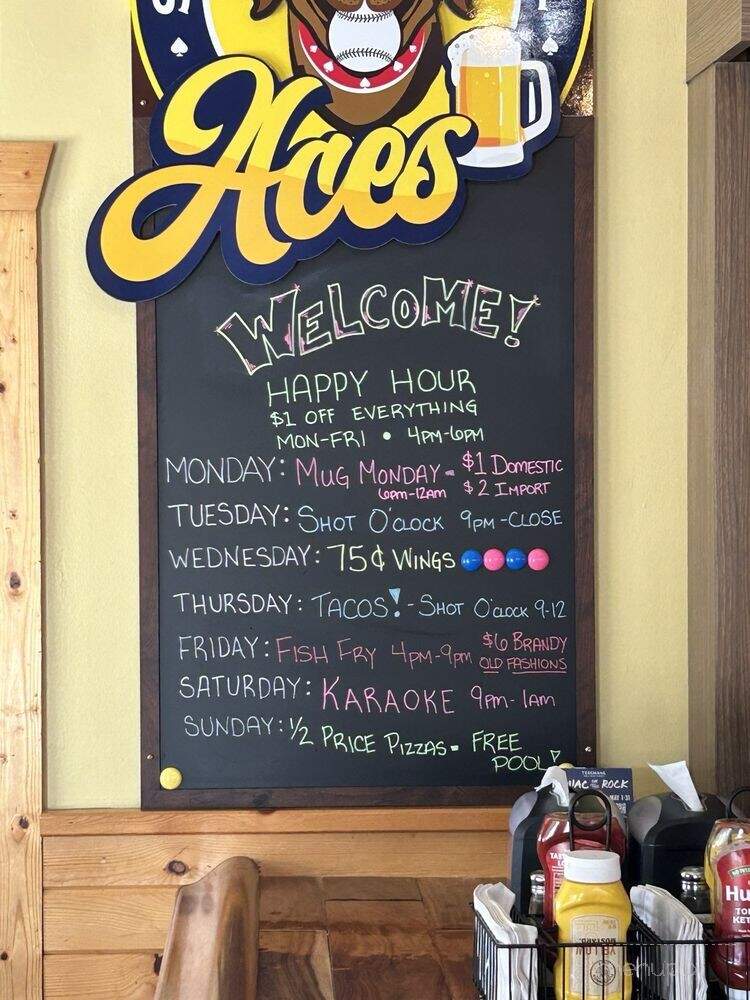 Aces
WELCOME!
HAPPY HOUR
$1 OFF EVERYTHING
MON-FRI • 4PM-6PM
MONDAY: MUG MONDAY - $1 DOMESTIC
6PM-12AM $2 IMPORT
TUESDAY: SHOT O'CLOCK 9PM-CLOSE
WEDNESDAY: 75¢ WINGS
THURSDAY: TACOS! - SHOT O'CLOCK 9-12
FRIDAY: FISH FRY 4PM-9PM $6 BRANDY
OLD FASHIONS
SATURDAY: KARAOKE 9PM-1AM
SUNDAY: 1/2 PRICE PIZZAS - FREE
POOL!
ROCK
Hu
KET